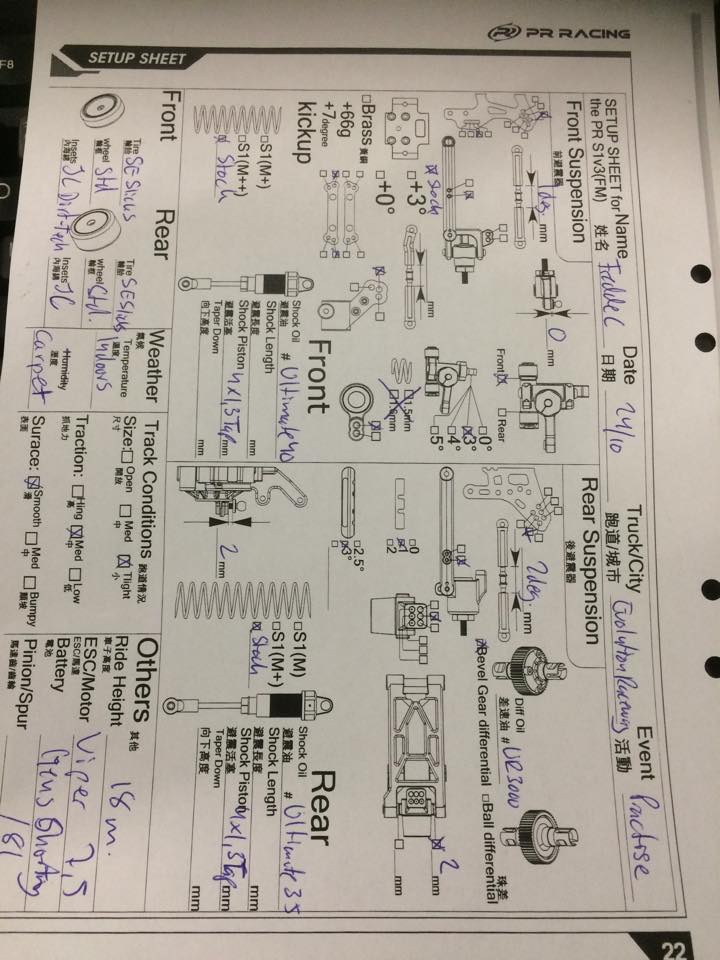 PR RACING
SETUP SHEET
SETUP SHEET for
the PR S1v3(FM)
Name
姓名
Freddie C
Date
日期
24/10
Truck/City
跑道/城市
Evolution Raceway
Event
活動
Practise
Front Suspension
前避震器
1deg. mm
0 mm
Front
Rear
□Brass 黃銅
+66g
+7degree
kickup
Stock
□+3°
□+0°
mm
□1.5mm
□0°
□3°
□4°
□5°
□S1(M+)
□S1(M++)
Stock
Front
Shock Oil # Ultimate 40
避震油
Shock Length mm
避震長度
Shock Piston 4x1,3Tap mm
避震活塞
Taper Down mm
向下高度
Rear Suspension
後避震器
2deg. mm
□0
□1
□2
□2.5°
□3°
2 mm
Diff Oil
差速油 # UR3000
Bevel Gear differential □Ball differential
珠差
2 mm
mm
□S1(M)
□S1(M+)
Stock
Rear
Shock Oil # Ultimate 35
避震油
Shock Length mm
避震長度
Shock Piston 4x1,3Tap mm
避震活塞
Taper Down mm
向下高度
Front
Tire SE Slicks
輪胎
wheel Std
輪框
Insets JC Dirt-Tech
內海綿
Rear
Tire SE Slicks
輪胎
wheel Std.
輪框
Insets JC
內海綿
Weather
氣候
Temperature Indoors
溫度
Humidity Carpet
溼度
Track Conditions 跑道情況
Size: □Open □Med □Tlight
尺寸 開放 中 小
Traction: □Hing □Med □Low
抓地力 高 中 低
Surace: □Smooth □Med □Bumpy
表面 滑 中 顛坡
Others 其他
Ride Height 18 m.
車子高度
ESC/Motor Viper 7,5
ESC/馬達
Battery Gens Shorty
電池
Pinion/Spur /81
馬達齒/齒輪
22
F8